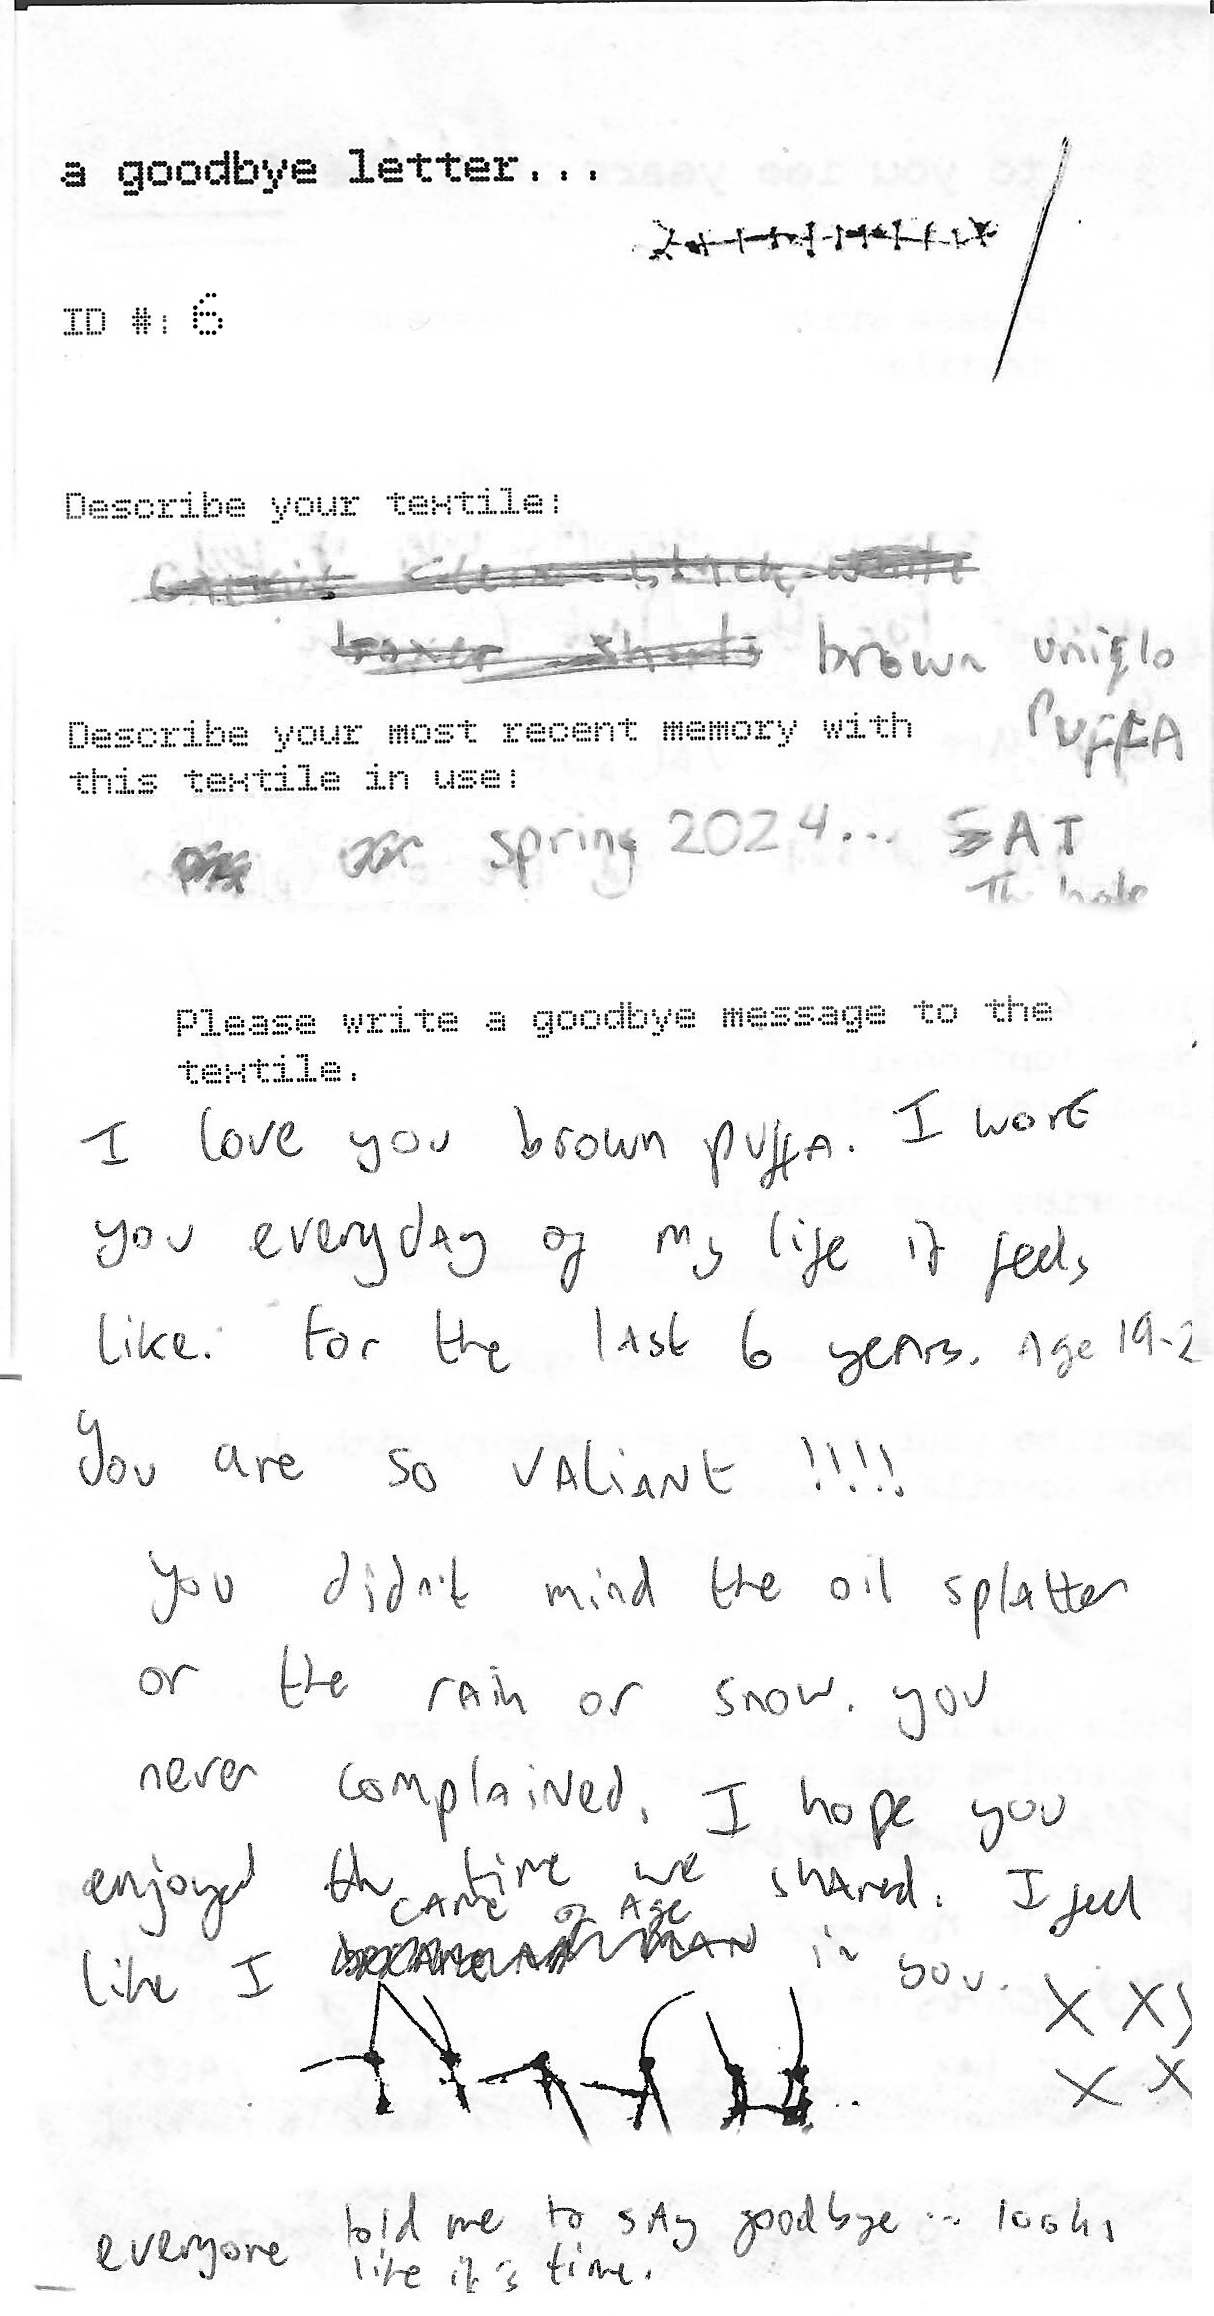 a goodbye letter...
ID #: 6
Describe your textile:
boxer shorts brown uniqlo
PUFFA
Describe your most recent memory with
this textile in use:
spring 2024... SAT
Please write a goodbye message to the
textile.
I love you brown puffA. I worE
you everydAy of my life it feels
like. for the lAst 6 yeArs. Age 19-2
you are so VALiANt !!!!
you didn't mind the oil splAtter
or the rAin or snow. you
never complAiNed. I hope you
enjoyed the time we shAred. I feel
CAme of Age
like I in you. X X
X X
everyone told me to sAy goodbye... looks
like it's time.